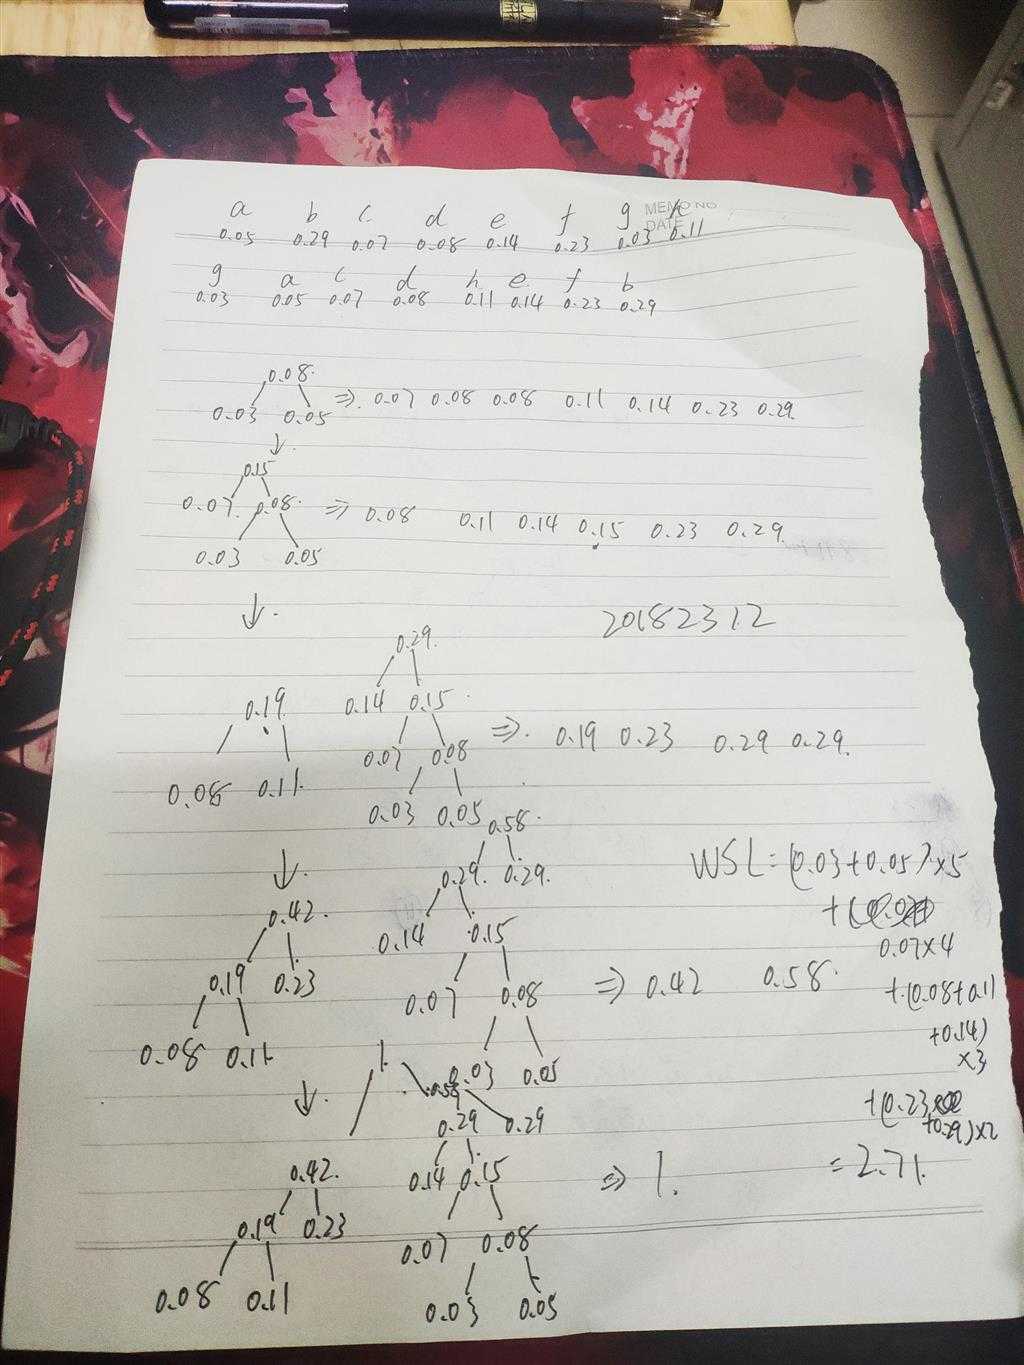 a b c d e f g h
MEMO NO
DATE
0.05 0.29 0.07 0.08 0.14 0.23 0.03 0.11
g a c d h e f b
0.03 0.05 0.07 0.08 0.11 0.14 0.23 0.29
0.08
0.03 0.05 ⇒ 0.07 0.08 0.08 0.11 0.14 0.23 0.29
↓
0.15
0.07 0.08 ⇒ 0.08 0.11 0.14 0.15 0.23 0.29
0.03 0.05
↓
20182312
0.29
0.19 0.14 0.15
⇒ 0.19 0.23 0.29 0.29
0.07 0.08
0.08 0.11
0.03 0.05
0.58
↓
0.29 0.29
0.42
0.14 0.15
0.19 0.23
0.07 0.08 ⇒ 0.42 0.58
0.08 0.11
0.03 0.05
WSL=(0.03+0.05)×5
+
0.07×4
+(0.08+0.11
+0.14)
×3
+(0.23
+0.29)×2
=2.71
↓
1
0.58
0.29 0.29
0.42 0.14 0.15 ⇒ 1.
0.19 0.23
0.07 0.08
0.08 0.11
0.03 0.05